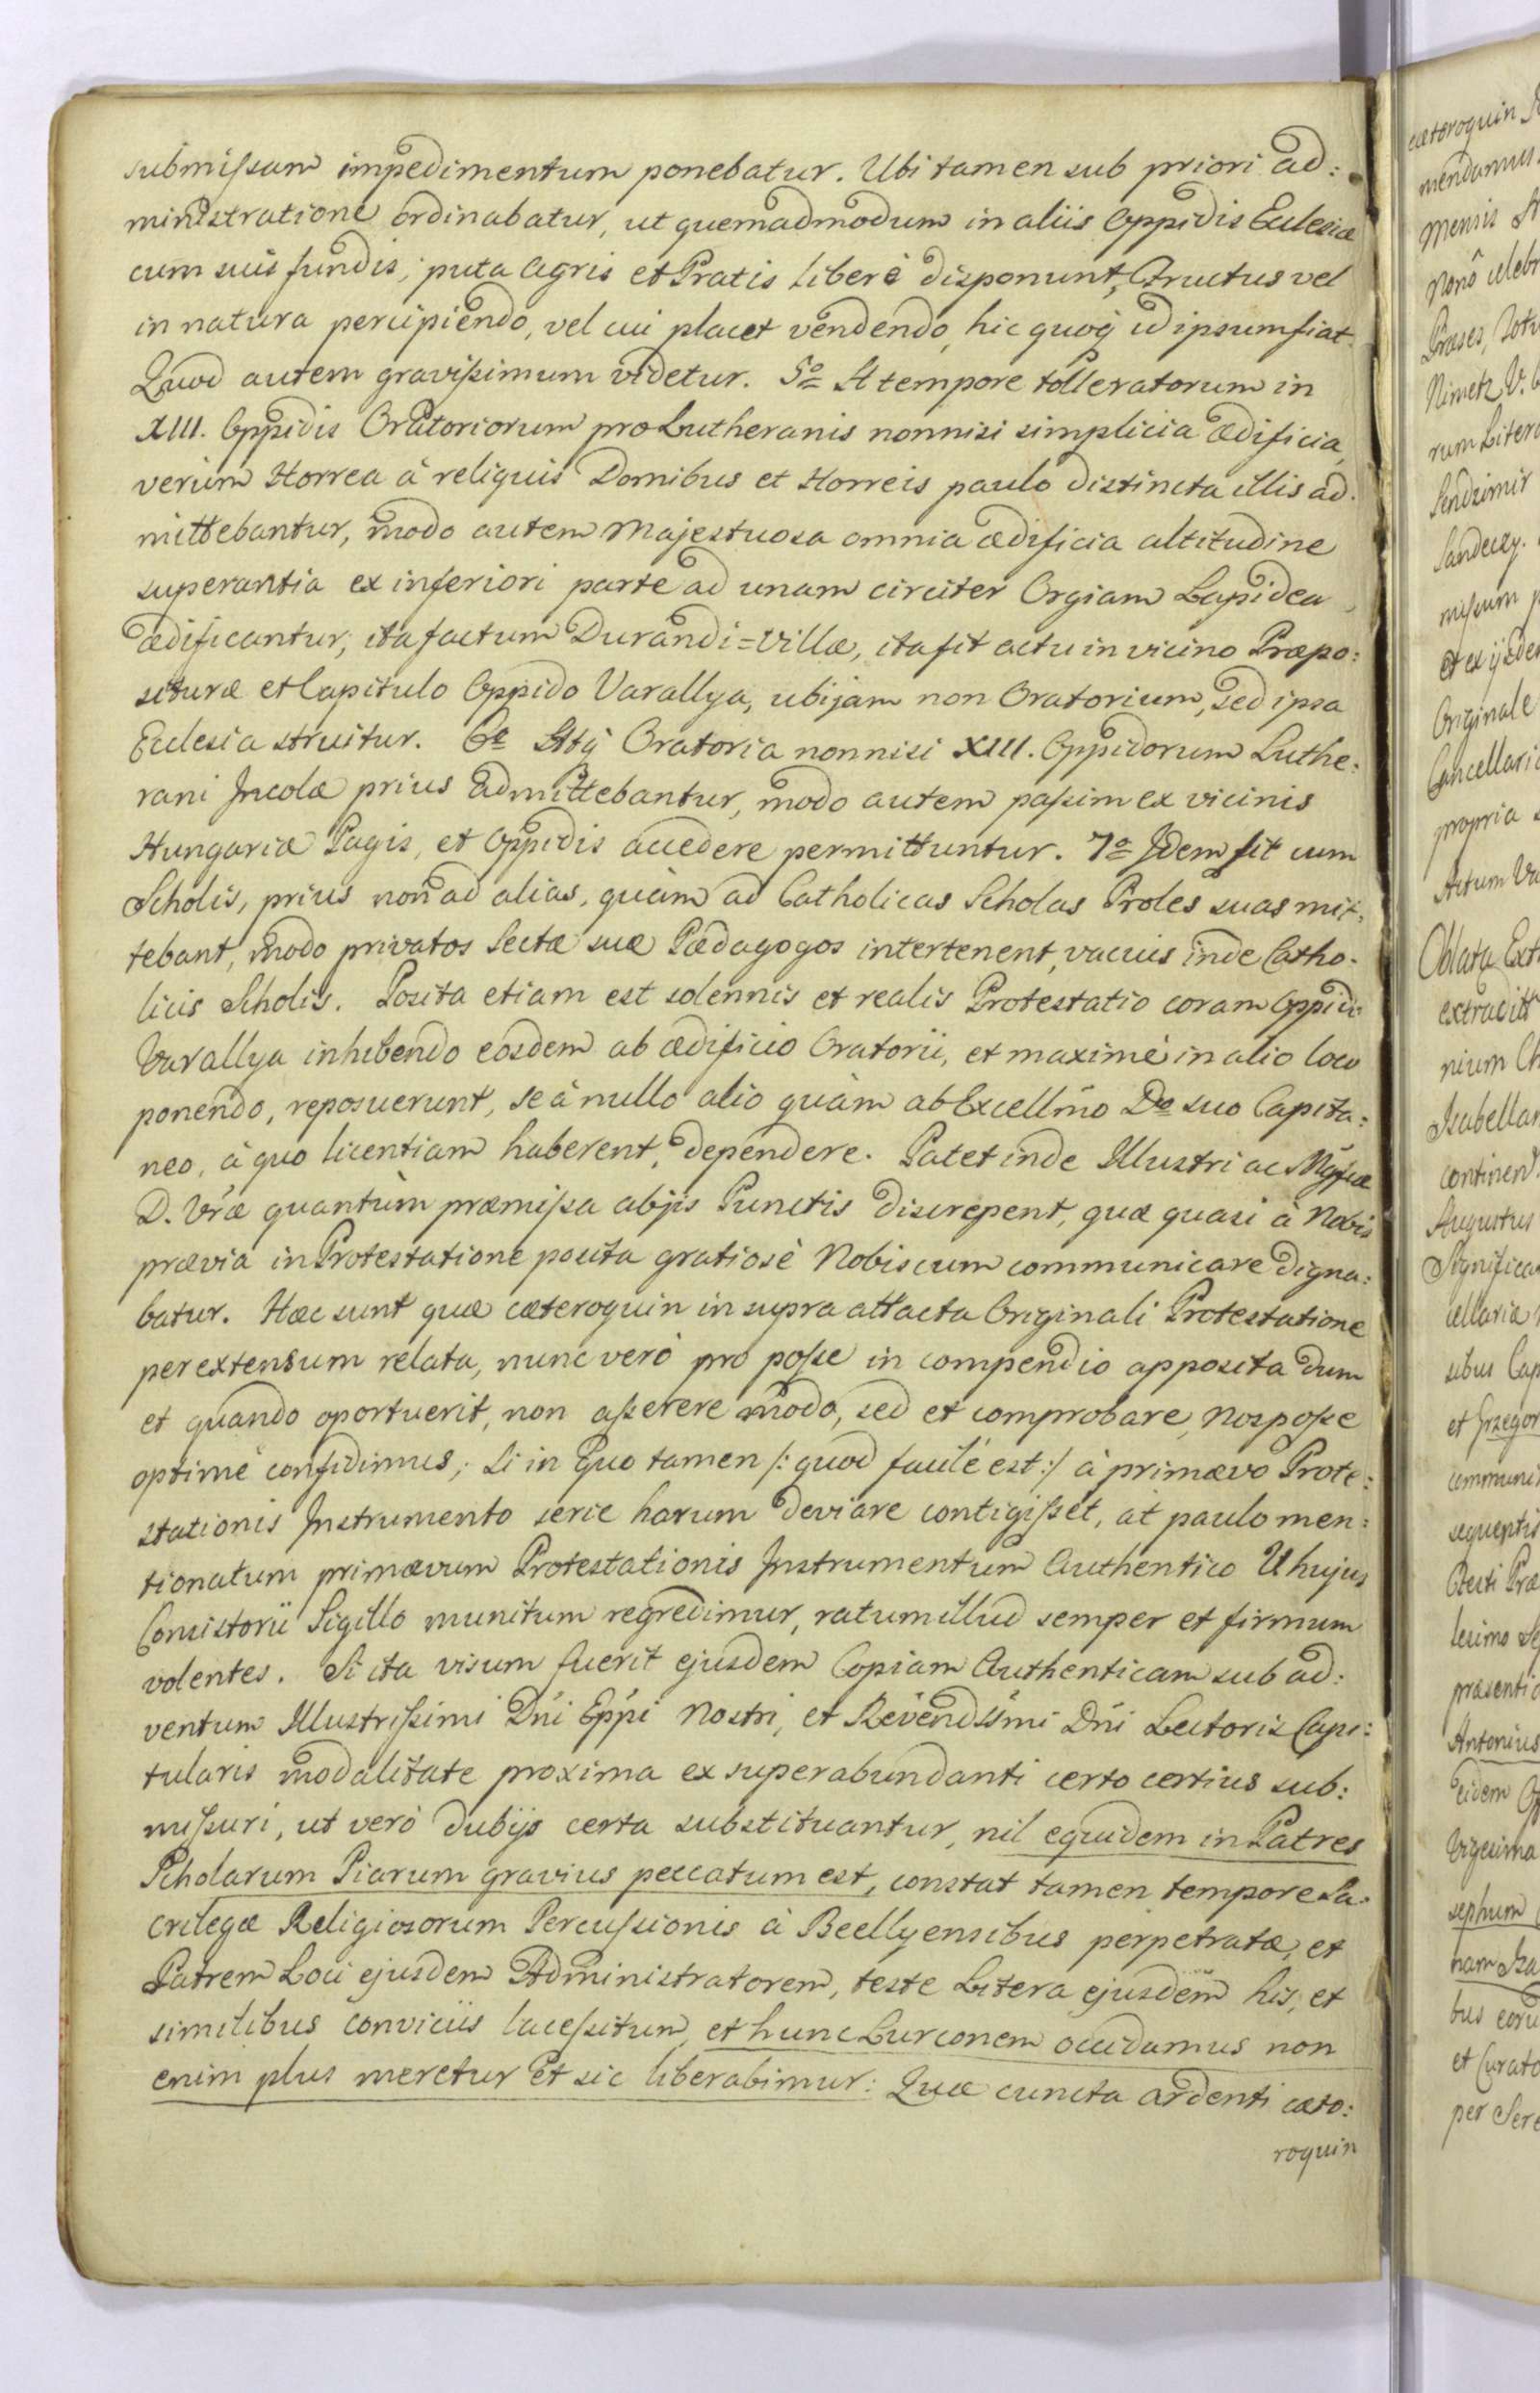 submissam impedimentum ponebatur. Ubi tamen sub priori ad:
ministratione ordinabatur, ut quemadmodum in aliis Oppidis Eclesiæ
cum suis fundis, puta Agris et Pratis liberè disponunt, Fructus vel
in natura percipiendo, vel cui placet vendendo, hic quoq́ id ipsum fiat.
Quod autem gravissimum videtur. 5o A tempore tolleratorum in
XIII. Oppidis Oratoriorum pro Lutheranis nonnisi simplicia ædificia,
verùm Horrea à reliquis Domibus et Horreis paulo distincta illis ad.
mittebantur, modo autem Majestuosa omnia ædificia altitudine
superantia ex inferiori parte ad unam circiter Orgiam Lapidea
ædificantur, ita factum Durandi=villæ, ita fit actu in vicino Præpo:
situræ et Capitulo Oppido Varallya, ubi jam non Oratorium, sed ipsa
Eclesia struitur. 6o Atq́ Oratoria nonnisi XIII. Oppidorum Luthe:
rani Incolæ prius admittebantur, modo autem passim ex vicinis
Hungariæ Pagis, et Oppidis accedere permittuntur. 7o Idem fit cum
Scholis, prius non ad alias, quàm ad Catholicas Scholas Proles suas mit:
tebant, modo privatos Sectæ suæ Pædagogos intertenent, vacuis inde Catho.
licis Scholis. Posita etiam est solennis et realis Protestatio coram Oppido
Varallya inhibendo eosdem ab ædificio Oratorii, et maximè in alio loco
ponendo, reposuerunt, se à nullo alio quàm ab Excellm̃o Do suo Capita:
neo, à quo licentiam haberent, dependere. Patet inde Illustri ac Mgfcæ
D. Vr̃æ quantùm præmissa ab ijs Punctis discrepent, quæ quasi à Nobis
prævia in Protestatione posita gratiosè Nobiscum communicare digna:
batur. Hæc sunt quæ cæteroquin in supra attacta Originali Protestatione
per extensum relata, nunc verò pro posse in compendio apposita dum
et quando oportuerit, non asserere modo, sed et comprobare, Nos posse
optimè confidimus; Si in quo tamen /: quod facilè est :/ à primævo Prote:
stationis Instrumento serie harum deviare contigisset, at paulo men:
tionatum primævum Protestationis Instrumentum Authentico Uhujus
Consistorii Sigillo munitum regredimur, ratum illud semper et firmum
volentes. Si ita visum fuerit ejusdem Copiam Authenticam sub ad:
ventum Illustrissimi Dńi Eppi Nostri, et Reverendssimi Dńi Lectoris Capi:
tularis modalitate proxima ex superabundanti certo certius sub:
missuri, ut verò dubijs certa substituantur, nil equidem in Patres
Scholarum Piarum gravius peccatum est, constat tamen tempore Sa:
crilegæ Religiosorum Percussionis à Beellyensibus perpetratæ, et
Patrem Loci ejusdem Administratorem, teste Litera ejusdem his, et
similibus conviciis lacessitum, et hunc Lurconem occidamus non
enim plus meretur et sic liberabimur: Quæ cuncta ardenti cæte:
roquin